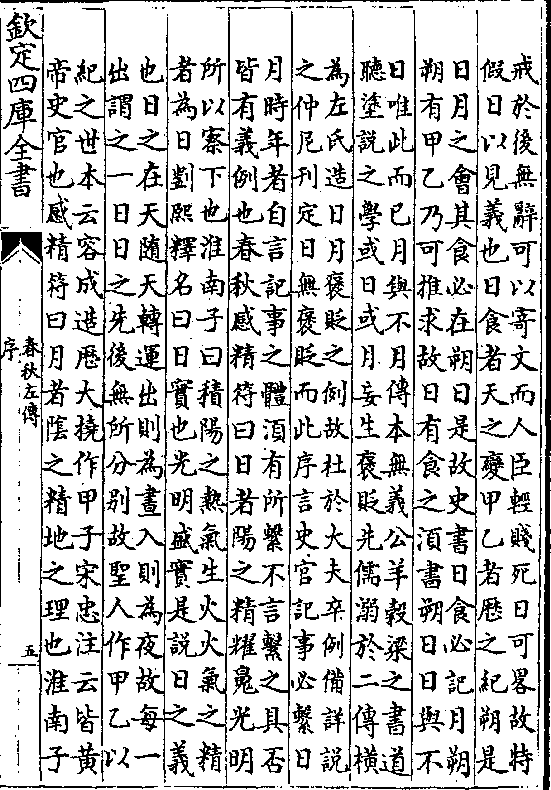 戒於後無辭可以寄文而人臣輕賤死日可畧故特
假日以見義也日食者天之變甲乙者厯之紀朔是
日月之會其食必在朔日是故史書日食必記月朔
朔有甲乙乃可推求故日有食之湏書朔日日與不
日唯此而已月與不月傳本無義公羊榖梁之書道
聽塗説之學或日或月妄生褒貶先儒溺於二傳横
為左氏造日月褒貶之例故杜於大夫卒例備詳説
之仲尼刋定日無褒貶而此序言史官記事必繫日
月時年者自言記事之體湏有所繫不言繫之具否
皆有義例也春秋感精符曰日者陽之精耀魄光明
所以察下也淮南子曰積陽之熱氣生火火氣之精
者為日劉熙釋名曰日實也光明盛實是説日之義
也日之在天随天轉運出則為晝入則為夜故每一
出謂之一日日之先後無所分别故聖人作甲乙以
紀之世本云容成造厯大撓作甲子宋忠注云皆黄
帝史官也感精符曰月者隂之精地之理也淮南子
欽定四庫全書
春秋左傳
序
五